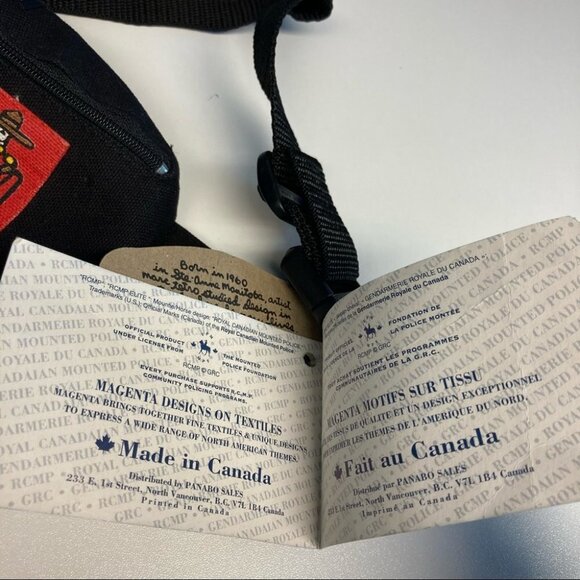 Born in 1960
in Ste. Anne Manitoba, artist
marc tetro studied design in
"RCMP" "RCMP-ELITE"
ROYAL CANADIAN MOUNTED POLICE
Trademarks (U.S.) Official Marks (Canada) of the Royal Canadian Mounted Police
OFFICIAL PRODUCT
UNDER LICENSE FROM
THE MOUNTED
POLICE FOUNDATION
RCMP © GRC
EVERY PURCHASE SUPPORTS R.C.M.P.
COMMUNITY POLICING PROGRAMS.
MAGENTA DESIGNS ON TEXTILES
MAGENTA BRINGS TOGETHER FINE TEXTILES & UNIQUE DESIGNS
TO EXPRESS A WIDE RANGE OF NORTH AMERICAN THEMES.
Made in Canada
Distributed by PANABO SALES
233 E. 1st Street, North Vancouver, B.C. V7L 1B4 Canada
Printed in Canada
GENDARMERIE ROYALE DU CANADA
Gendarmerie Royale du Canada
FONDATION DE
LA POLICE MONTÉE
RCMP © GRC
ACHAT SOUTIENT LES PROGRAMMES
COMMUNAUTAIRES DE LA G.R.C.
MAGENTA MOTIFS SUR TISSU
TISSUS DE QUALITE ET UN DESIGN EXCEPTIONNEL
LES THEMES DE L'AMERIQUE DU NORD.
Fait au Canada
Distribué par PANABO SALES
233 E 1st Street, North Vancouver, B.C. V7L 1B4 Canada
Imprimé au Canada